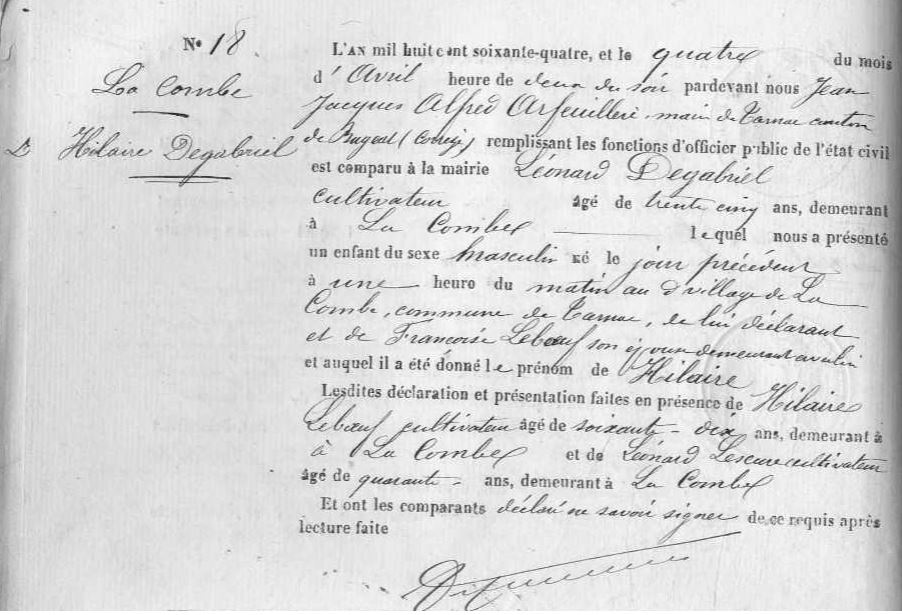 N° 18.
La Combe
D Hilaire Degabriel
L'AN mil huit cent soixante-quatre, et le quatre du mois
d'Avril heure de deux du soir pardevant nous Jean
Jacques Alfred Arfeuillère, maire de Tarnac canton
de Bugeat (Corrèze) remplissant les fonctions d'officier public de l'état civil
est comparu à la mairie Léonard Degabriel
cultivateur âgé de trente cinq ans, demeurant
à La Combe lequel nous a présenté
un enfant du sexe masculin né le jour précédent
à une heure du matin au d village de La
Combe, commune de Tarnac, de lui déclarant
et de Francoise Leboeuf son épouse demeurant avec lui
et auquel il a été donné le prénom de Hilaire
Lesdites déclaration et présentation faites en présence de Hilaire
Leboeuf cultivateur âgé de soixante-dix ans, demeurant à
à La Combe et de Léonard Lescure cultivateur
âgé de quarante ans, demeurant à La Combe
Et ont les comparants déclaré ne savoir signer de ce requis après
lecture faite